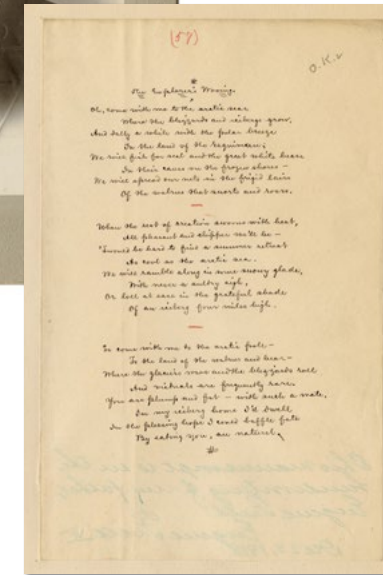 (57)
O.K.
The Explorer's Wooing.
Oh, come with me to the arctic seas
Where the blizzards and icebergs grow,
And dally a while with the polar breeze
In the land of the
We will fish for seal and the great white bear
In their caves on the frozen shores —
We will spread our nets in the frigid lair
Of the walrus that snorts and roars.
When the rest of creation swoons with heat,
All pleasant and chipper we'll be —
'Twould be hard to find a summer retreat
As cool as the arctic sea.
We will ramble along in some snowy glade,
With never a sultry sigh,
Or loll at ease in the grateful shade
Of an iceberg four miles high.
So come with me to the arctic pole —
To the land of the walrus and bear —
Where the glaciers rove and the blizzards roll
And victuals are frequently rare.
You are plump and fat — with such a mate,
In my iceberg home I'd dwell
In the pleasing hope I could baffle fate
By eating you, au naturel.